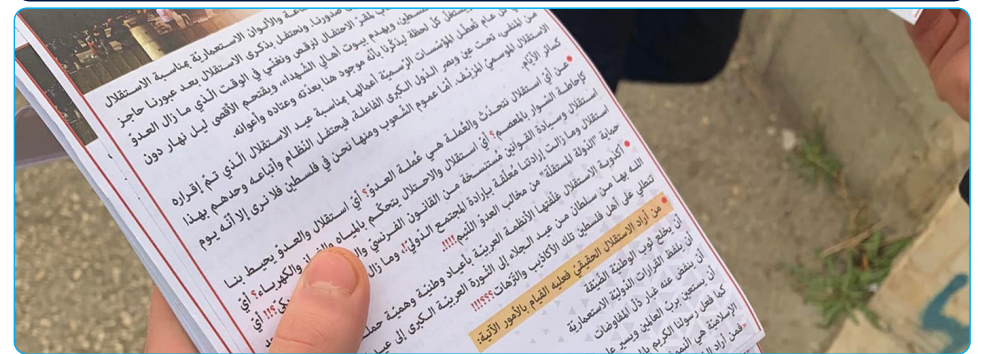 والألوان الاستعماريّة بمناسبة الاستقلال
صدورنا، ونحتفل بذكرى الاستقلال بعد عبورنا حاجز
لمقرّ الاحتلال لنرقص ونغنّي في الوقت الّذي ما زال العدوّ
فلسطين، ويهدم بيوت أهالي الشّهداء، ويقتحم الأقصى ليل نهار دون
كلّ لحظة ليذكّرنا بأنّه موجود هنا بعدّته وعتاده وأعوانه.
كلّ عام تُعطّل المؤسّسات الرّسميّة أعمالها بمناسبة عيد الاستقلال الّذي تمّ إقراره
من المنفى، تحت عين وبصر الدّول الكبرى الفاعلة، فيحتفل النّظام وأتباعه وحدهم بهذا
الاستقلال الموسميّ المزيّف، أمّا عموم الشّعوب ومنها نحن في فلسطين فلا نرى إلا أنّه يوم
كسائر الأيّام.
• عن أيّ استقلال نتحدّث والعُملة هي عُملة العدوّ؟ أيّ استقلال والعدوّ يحيط بنا
كإحاطة السّوار بالمعصم؟ أيّ استقلال والاحتلال يتحكّم بالمياه والكهرباء؟ أيّ
استقلال وسيادة القوانين مستنسخة من القانون الفرنسيّ أيّ
استقلال وما زالت إرادتنا معلّقة بإرادة المجتمع الدّوليّ، وما زال
حماية "الدّولة المستقلّة" من مخالب العدوّ اللّئيم!!!!
• أكذوبة الاستقلال خلّفتها الأنظمة العربيّة بأعياد وطنيّة وهميّة
الله بها من سلطان من عيد الجلاء إلى الثّورة العربيّة الكبرى إلى
تنطلي على أهل فلسطين تلك الأكاذيب والتّرّهات؟؟؟!!!
• من أراد الاستقلال الحقيقيّ فعليه القيام بالأمور الآتية:
أن يخلع ثوب الوطنيّة الضّيّقة
أن يلفظ القرارات الدّوليّة الاستعماريّة
أن ينفض عنه غبار ذلّ المفاوضات
أن يستعين بربّ العالمين ويسير على
كما فعل رسولنا الكريم
الإسلاميّة هي
فمن أراد